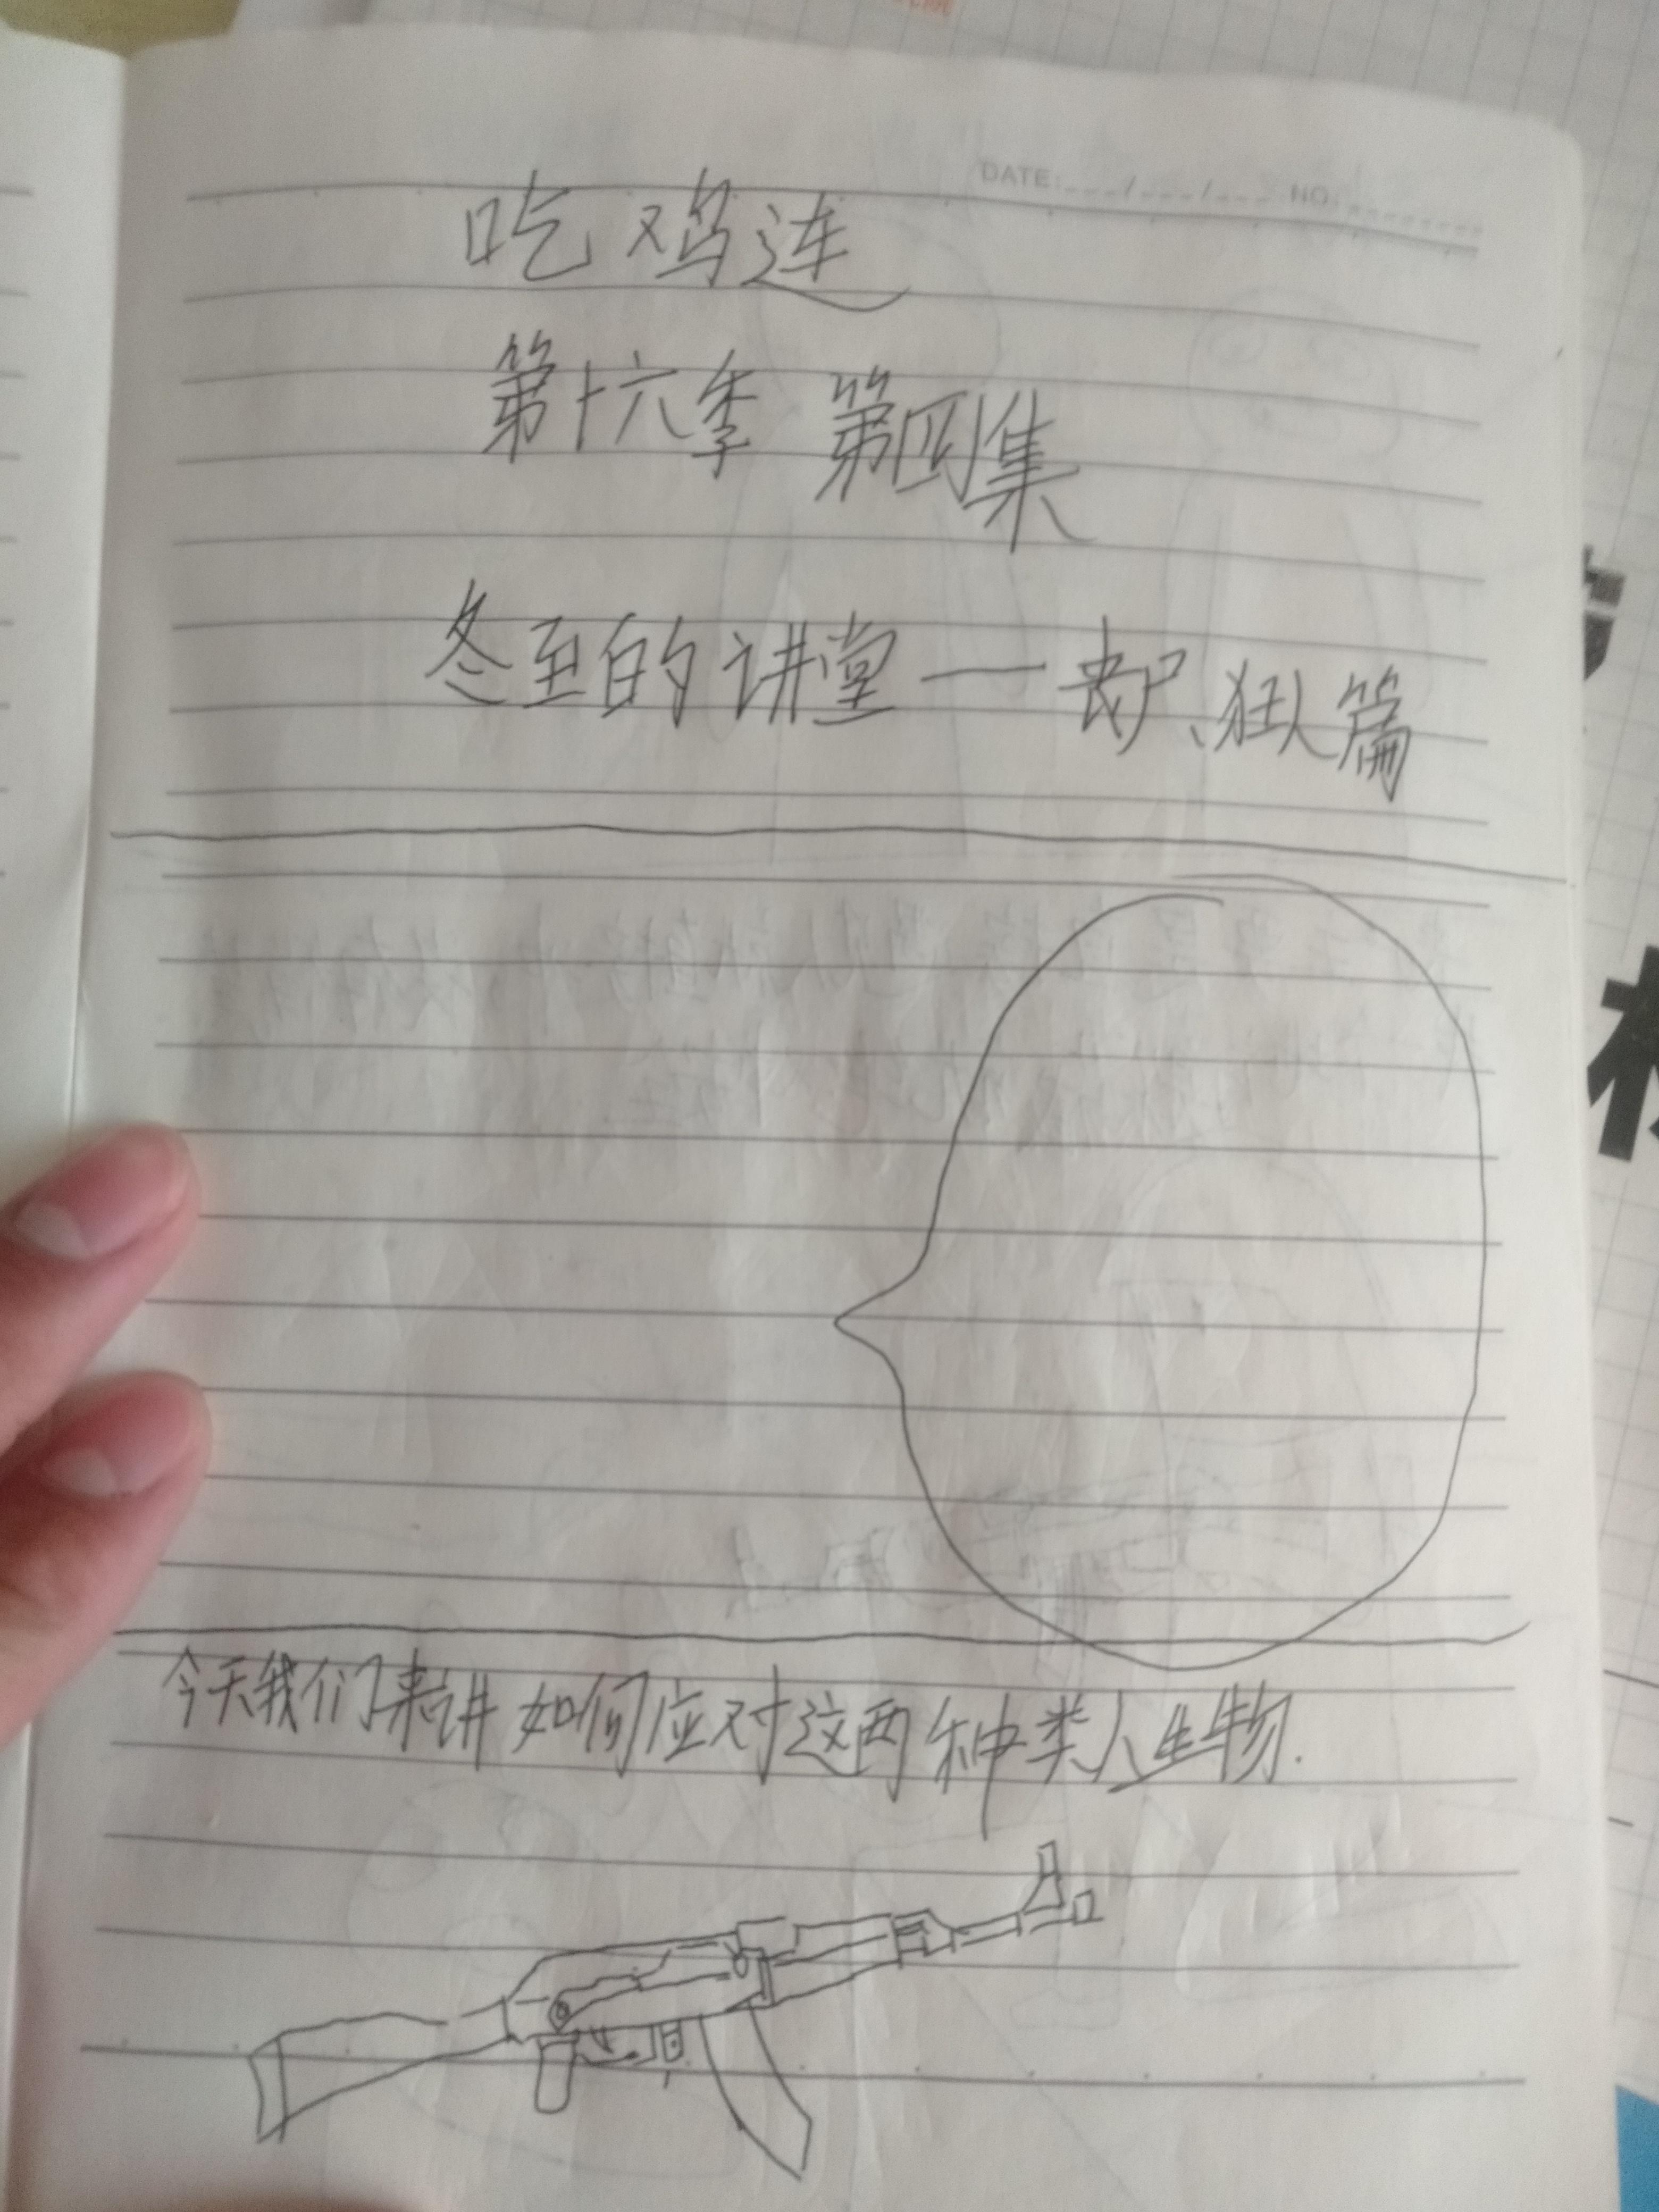 DATE: NO:
吃鸡连
第十六季 第四集
冬至的讲堂—丧尸、狂人篇
今天我们来讲如何应对这两种类人生物.